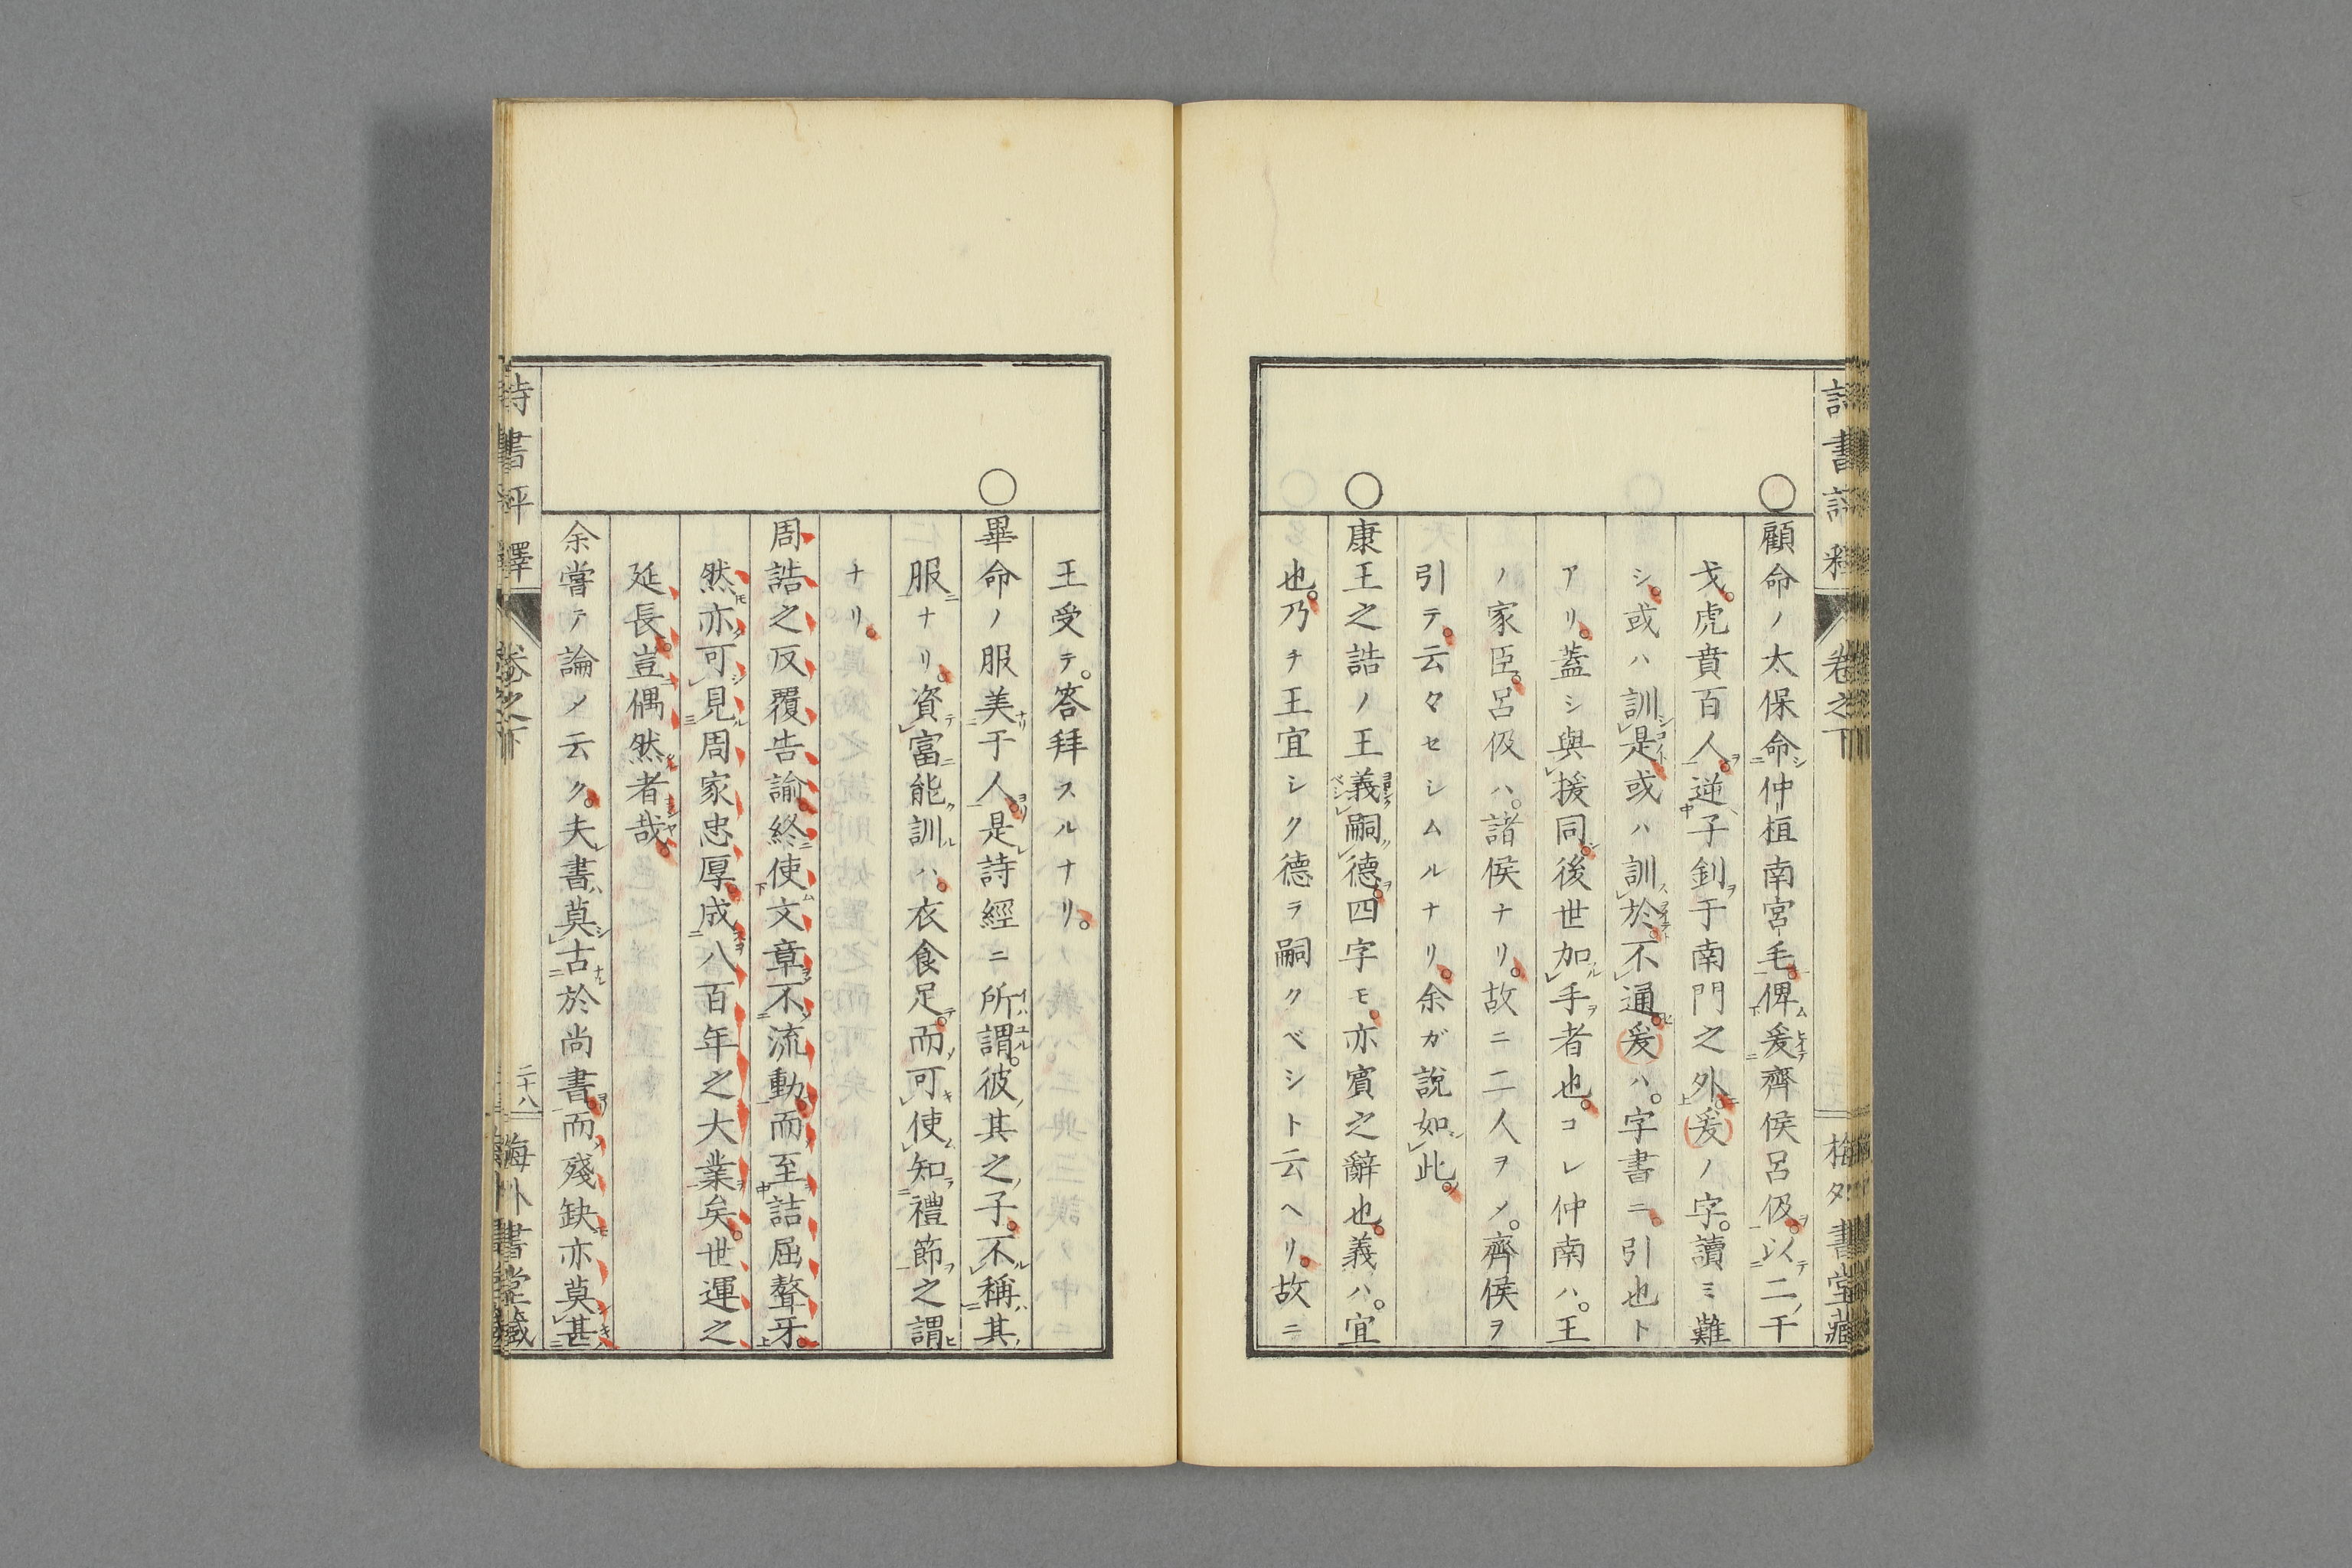 詩書評釋　卷之下　梅外書堂藏
○顧命ノ太保命仲桓南宮毛。俾爰齊侯呂伋。以二干
戈。虎賁百人。逆子釗于南門之外。爰ノ字。讀ミ難
シ。或ハ訓是或ハ訓於。不通。爰ハ。字書ニ。引也ト
アリ。蓋シ與援同。後世加手者也。コレ仲南ハ。王
ノ家臣。呂伋ハ。諸侯ナリ。故ニ二人ヲメ。齊侯ヲ
引テ。云々セシムルナリ。余ガ說如此。
○康王之誥ノ王義嗣德。四字モ。亦賓之辭也。義ハ。宜
也。乃チ王宜シク德ラ嗣クベシト云ヘリ。故ニ
王受テ。答拜スルナリ。
○畢命ノ服美于人。是詩經ニ所謂。彼其之子。不稱其
服ナリ。資富能訓ハ。衣食足。而可使知禮節之謂
ナリ。
周誥之反覆告諭。終使文章不流動而至詰屈聱牙。
然亦可見周家忠厚。成八百年之大業矣。世運之
延長。豈偶然者哉。
余嘗テ論メ云ク。夫書莫古於尚書。而殘缺亦莫甚
詩書評釋　卷之下　二十八　梅外書堂藏